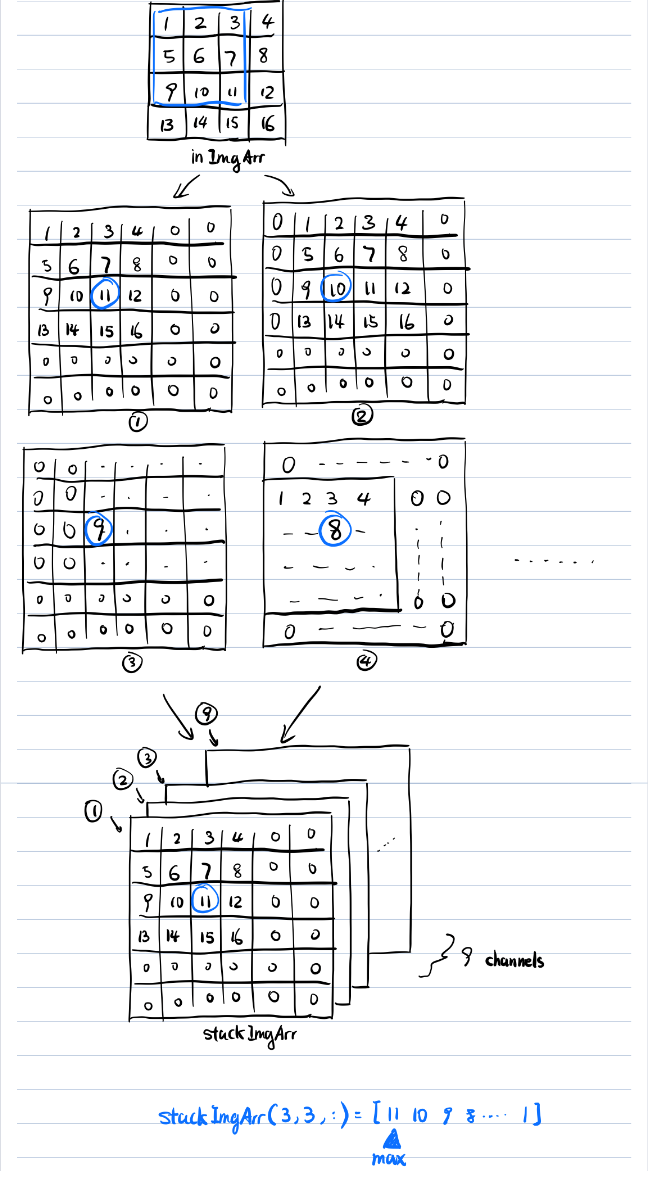 1 2 3 4
5 6 7 8
9 10 11 12
13 14 15 16
in ImgArr
1 2 3 4 0 0
5 6 7 8 0 0
9 10 11 12 0 0
13 14 15 16 0 0
0 0 0 0 0 0
0 0 0 0 0 0
①
0 1 2 3 4 0
0 5 6 7 8 0
0 9 10 11 12 0
0 13 14 15 16 0
0 0 0 0 0 0
0 0 0 0 0 0
②
0 0 · · · ·
0 0 · · · ·
0 0 9 · · ·
0 0 · · · ·
0 0 0 0 0 0
0 0 0 0 0 0
③
0 - - - - - - 0
1 2 3 4 0 0
- - 8 -
- - - ·
- - - · 0 0
0 - - - - 0
④
· · · · · ·
⑨
③
②
①
1 2 3 4 0 0
5 6 7 8 0 0
9 10 11 12 0 0
13 14 15 16 0 0
0 0 0 0 0 0
0 0 0 0 0 0
9 channels
stackImgArr
stackImgArr(3,3,:) = [11 10 9 8 ···· 1]
max